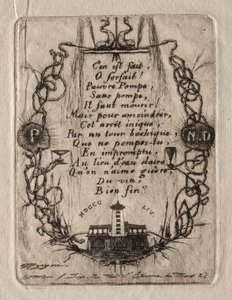 C'en est fait,
O forfait!
Pauvre Pompe,
Sans pompe,
Il faut mourir!
Mais pour amoindrir,
Cet arrêt inique,
Par un tour bachique,
Que ne pompes-tu,
En impromptu,
Au lieu d'eau claire,
Qu'on n'aime guère,
Du vin,
Bien fin?
P
N.D
MDCCC LIV.